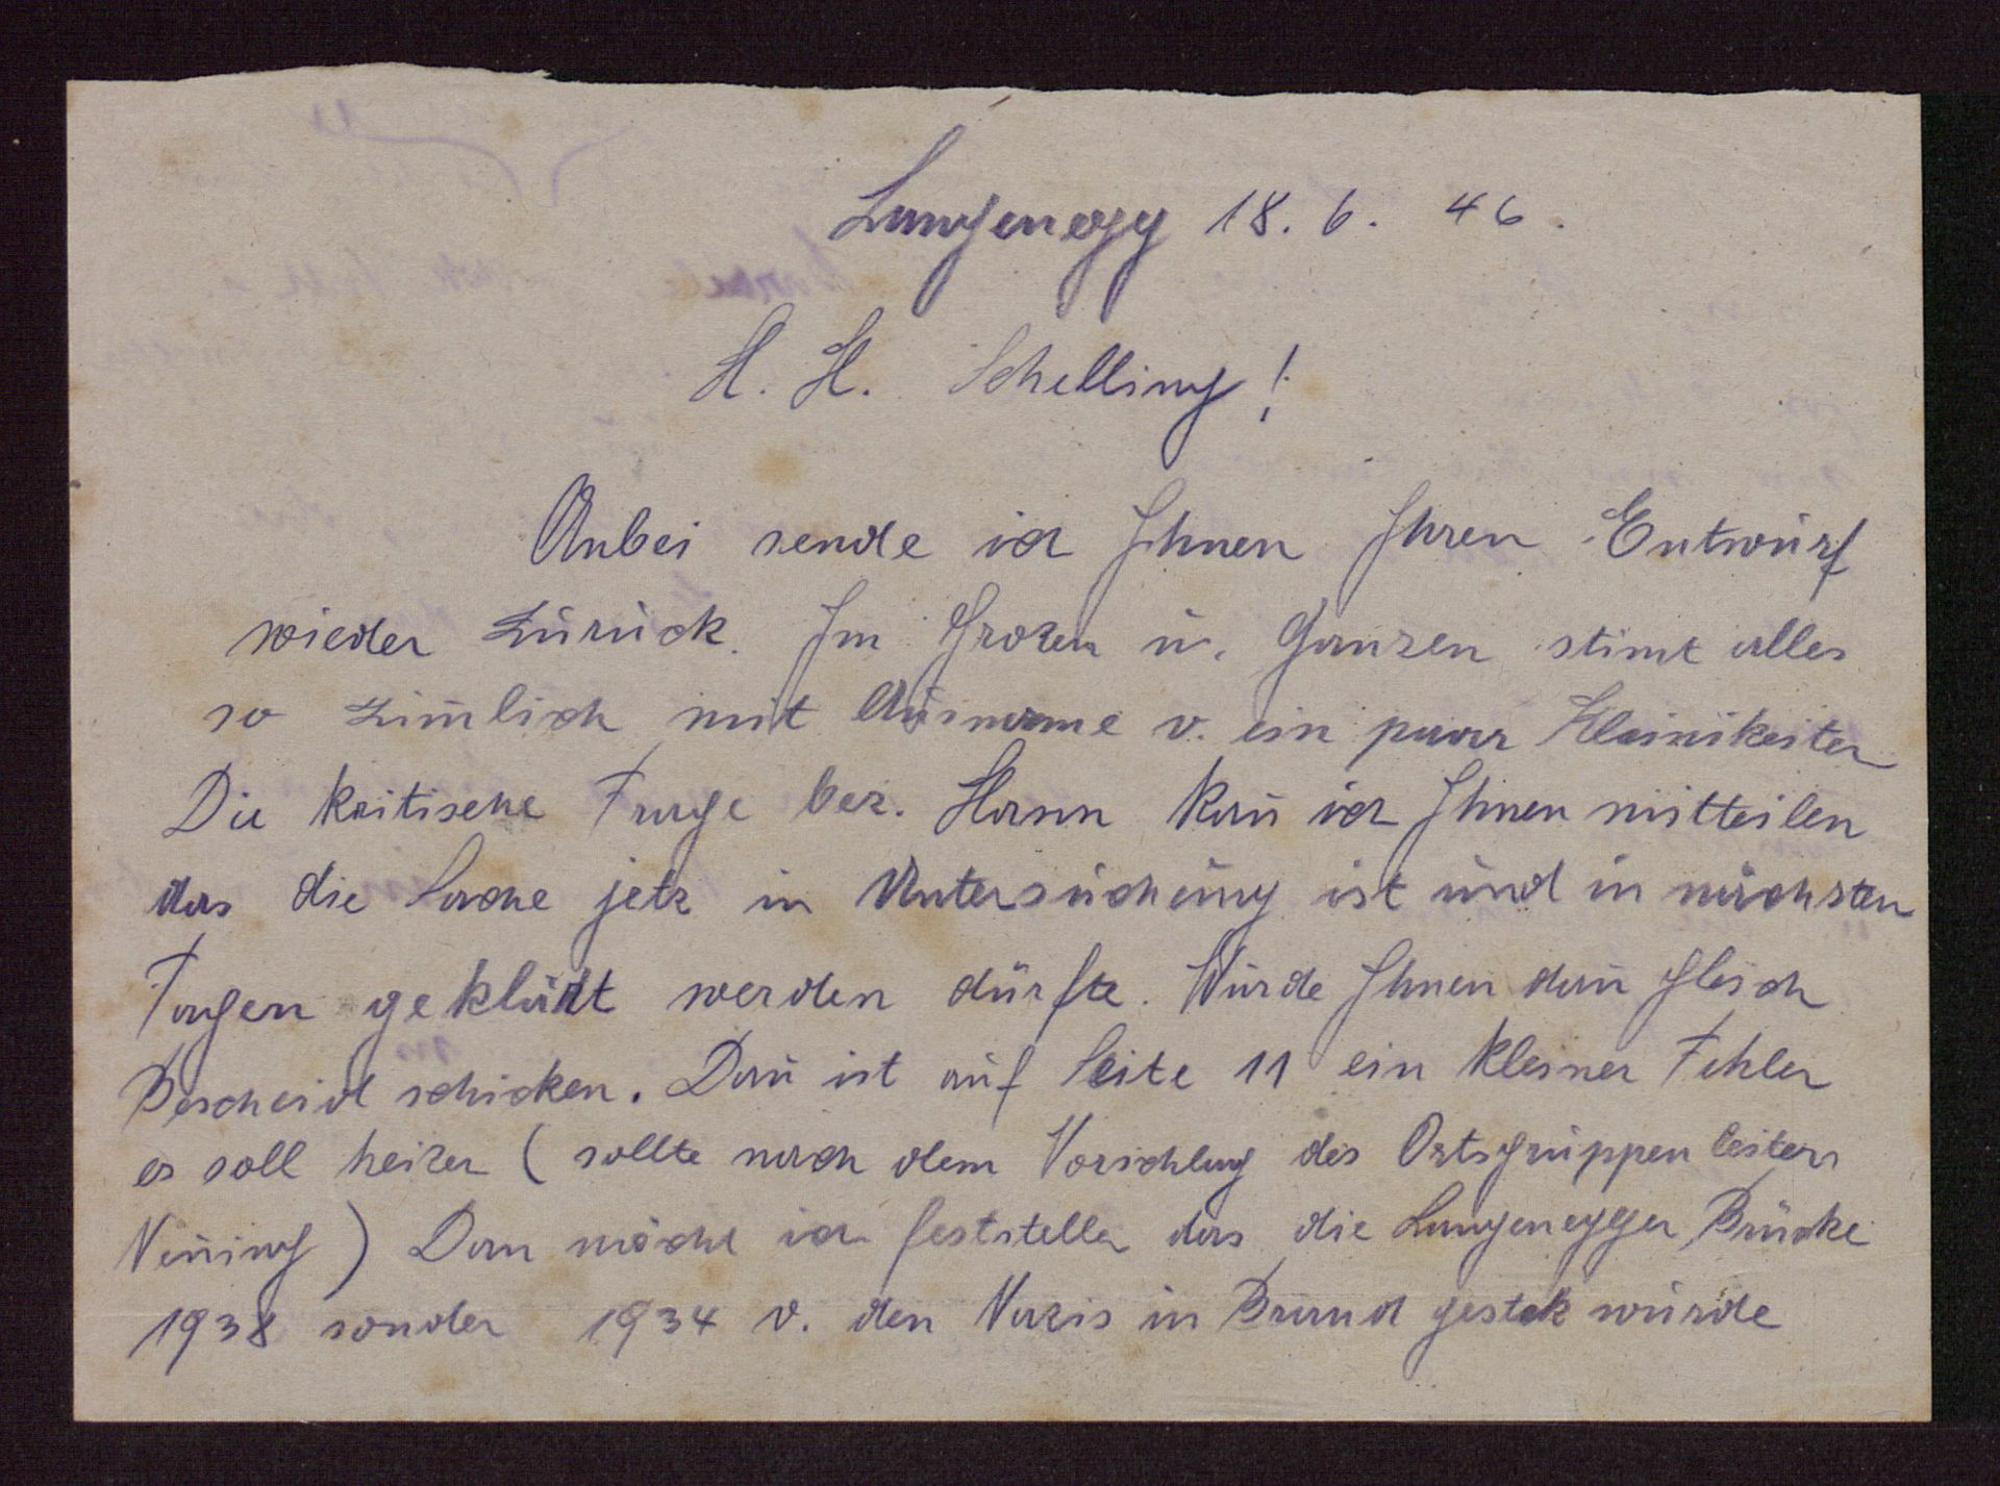 Langenegg 18. 6. 46.
H. H. Schelling!
Anbei sende ich Ihnen Ihren Entwurf
wieder zurück. Im Grozen u. Ganzen stimt alles
so zimlich mit Ausname v. ein paar Kleinikeiten
Die kritische Frage bez. Hann kan̄ ich Ihnen mitteilen
das die Sache jetz in Untersuchung ist und in nächsten
Tagen geklärt werden dürfte. Würde Ihnen dan̄ gleich
Bescheid schicken. Dan̄ ist auf Seite 11 ein kleiner Fehler
es soll heizen (sollte nach dem Vorschlag des Ortsgruppenleiters
Nen̄ing) Dan möcht ich feststellen das die Langenegger Brücke
1938 sonder 1934 v. den Nazis in Brand gestek würde